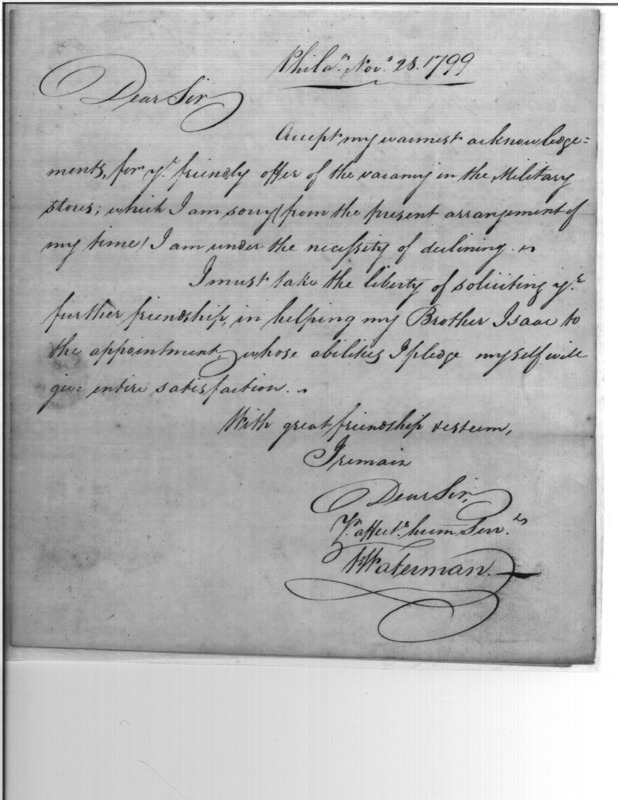 Philaᵃ Novʳ 28. 1799
Dear Sir
Accept, my warmest acknowledge=
ments, for yʳ friendly offer of the vacancy in the Military
stores; which I am sorry (from the present arrangement of
my time) I am under the necessity of declining.
I must take the liberty of soliciting yʳ
further friendship, in helping my Brother Isaac to
the appointment, whose abilities I pledge myself will
give entire satisfaction.
With great friendship & esteem,
I remain
Dear Sir,
Yʳ affectᵉ hum Servᵗ
Waterman.